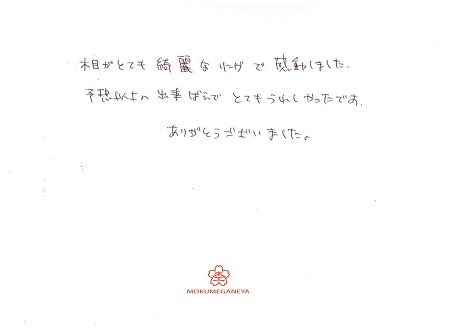 木目がとても 綺麗な で 感動しました.
予想以上の 出来ばえで とてもうれしかったです.
ありがとうございました。
MOKUMEGANEYA